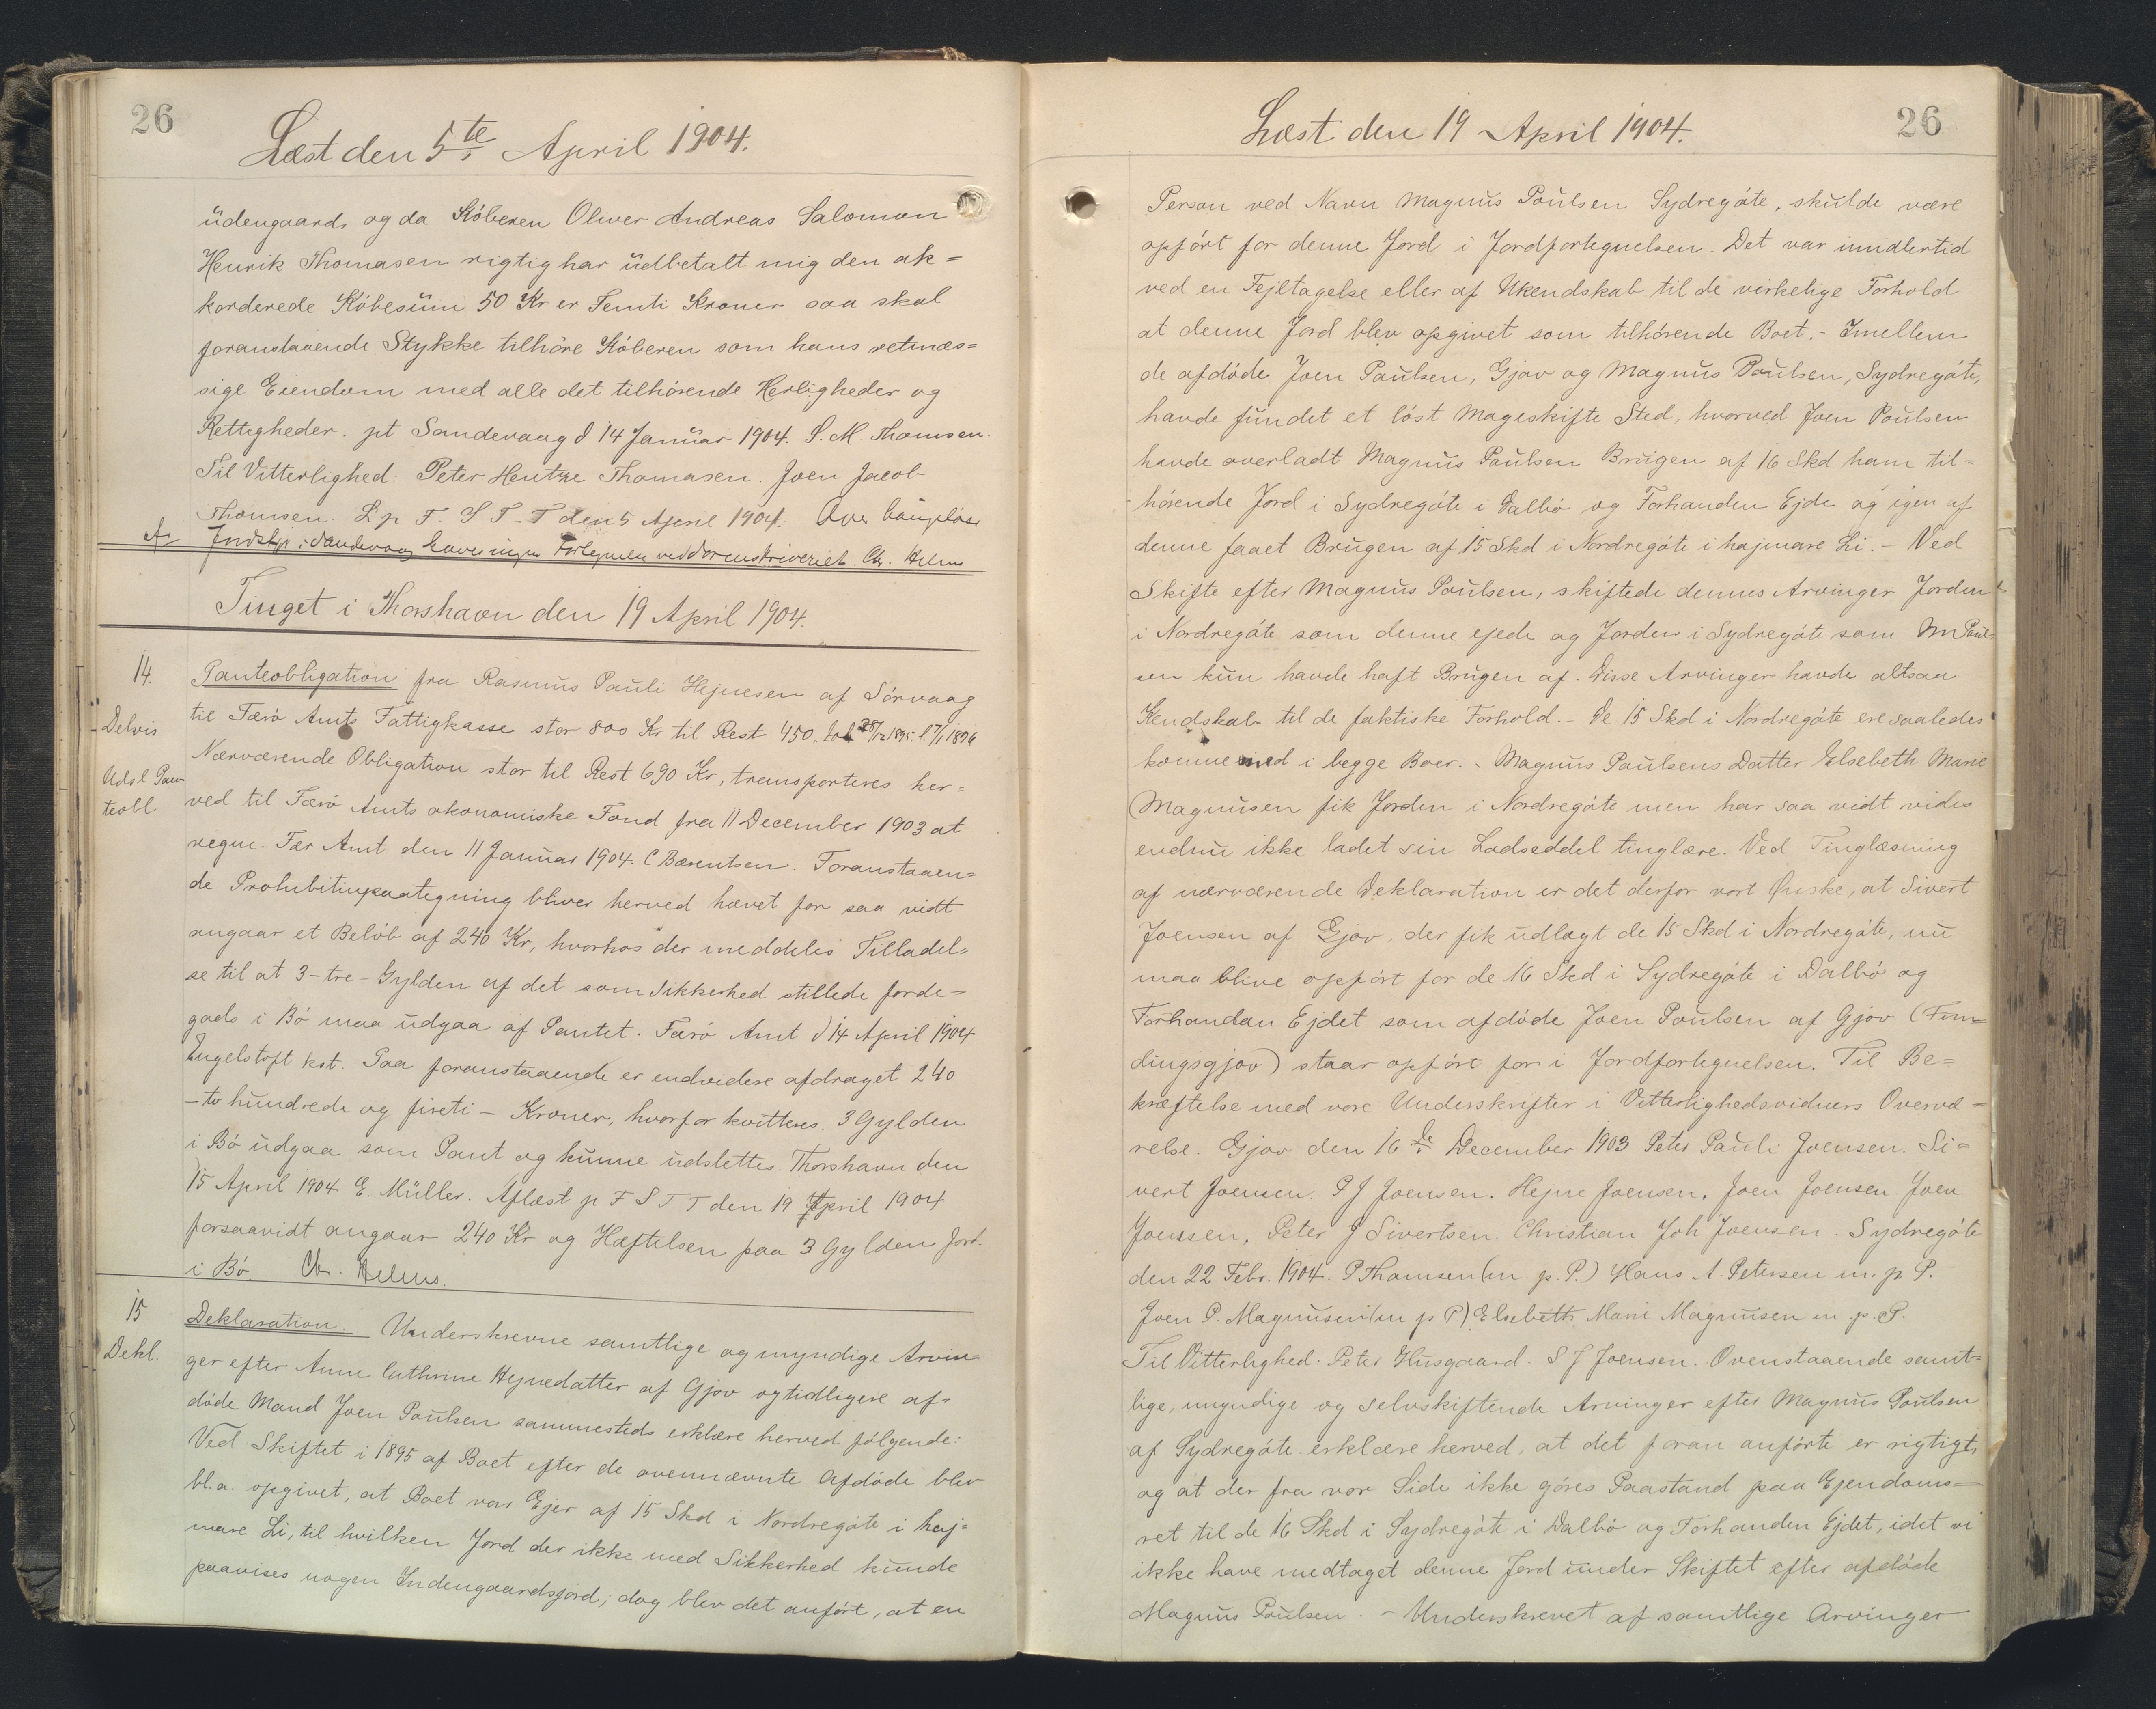 26
Læst den 5te April 1904.
üdengaards og da Köberen Oliver Andreas Salomon
Henrik Thomasen rigtig har üdbetalt mig den ak=
korderede Köbesüm 50 Kr er Femti Kroner saa skal
foranstaaende Stykke tilhöre Köberen som hans retmæs=
sige Eiendom med alle det tilhörende Herligheder og
Rettigheder. pt Sandevaag d 14 Janüar 1904. S. M. Thomsen.
Til Vitterlighed: Peter Hentze Thomasen. Joen Jacob
Thomsen. L p F. S T-T den 5 April 1904.
Ch. Helms
Tinget i Thorshavn den 19 April 1904.
14.
Delvis
Udsl Pan
teobl.
Panteobligation fra Rasmüs Paüli Hejnesen af Sörvaag
til Færö Amts Fattigkasse stor 800 Kr til Rest 450. 28/12 1895. l 7/1 1896
Nærværende Obligation stor til Rest 690 Kr, transporteres her=
ved til Færö Amts økonomiske Fond fra 11 December 1903 at
regne. Fær Amt den 11 Janüar 1904. C Bærentsen. Foranstaaen=
de Prohibitivpaategning bliver herved hævet for saa vidt
angaar et Belöb af 240 Kr, hvorhos der meddeles Tilladel=
se til at 3-tre-Gylden af det som Sikkerhed stillede Jorde=
gods i Bö maa üdgaa af Pantet. Færö Amt d 14 April 1904
Engelstoft kst. Paa foranstaaende er endvidere afdraget 240
-to hündrede og fireti- Kroner, hvorfor kvitteres. 3 Gylden
i Bö üdgaa som Pant og künne üdslettes. Thorshavn den
15 April 1904 E. Müller. Aflæst p F S T T den 19 April 1904
forsaavidt angaar 240 Kr og Hæftelsen paa 3 Gylden Jord
i Bö. Ch. Helms.
15
Dekl.
Deklaration. Underskrevne samtlige og myndige Arvin=
ger efter Anne Cathrine Hejnedatter af Gjov og tidligere af=
döde Mand Joen Poülsen sammesteds erklære herved fölgende:
Ved Skiftet i 1895 af Boet efter de ovennævnte Afdöde blev
bl.a. opgivet, at Boet var Ejer af 15 Skd i Nordregöte i haj=
mare Li, til hvilken Jord der ikke med Sikkerhed künde
paavises nogen Indengaardsjord; dog blev det anfört, at en
Læst den 19 April 1904.
26
Person ved Navn Magnüs Poülsen Sydregöte, skülde være
opfört for denne Jord i Jordfortegnelsen. Det var imidlertid
ved en Fejltagelse eller af Ukendskab til de virkelige Forhold
at denne Jord blev opgivet som tilhörende Boet.- Imellem
de afdöde Joen Poülsen, Gjov og Magnüs Poülsen, Sydregöte,
havde fündet et löst Mageskifte Sted, hvorved Joen Poülsen
havde overladt Magnüs Poülsen Brügen af 16 Skd ham til=
hörende Jord i Sydregöte i Dalbö og Forhanden Ejde og igen af
denne faaet Brügen af 15 Skd i Nordregöte i hajmare Li.- Ved
Skifte efter Magnüs Poülsen, skiftede dennes Arvinger Jorden
i Nordregöte som denne ejede og Jorden i Sydregöte som M Poül=
sen kün havde haft Brügen af. Disse Arvinger havde altsaa
Kendskab til de faktiske Forhold.- De 15 Skd i Nordregöte ere saaledes
komne med i begge Boer.- Magnüs Poülsens Datter Elsebeth Marie
Magnüsen fik Jorden i Nordregöte men har saa vidt vides
endnü ikke ladet sin Lodseddel tinglære. Ved Tinglæsning
af nærværende Deklaration er det derfor vort Ønske, at Sivert
Joensen af Gjov, der fik üdlagt de 15 Skd i Nordregöte, nü
maa blive opfört for de 16 Skd i Sydregöte i Dalbö og
Forhandan Ejdet som afdöde Joen Poülsen af Gjov (Fun=
dingsgjov) staar opfört for i Jordfortegnelsen. Til Be=
kræftelse med vore Underskrifter i Vitterlighedsvidners Overvæ=
relse. Gjov den 16de December 1903 Peter Paüli Joensen. Si=
vert Joensen. P J Joensen. Hejne Joensen. Joen Joensen. Joen
Joensen. Peter J Sivertsen. Christian Joh Joensen. Sydregöte
den 22 Febr. 1904. P Thomsen (m. p. P.) Hans A. Petersen m. p P.
Joen P. Magnüsen (m p P.) Elsebeth Marie Magnüsen m. p. P.
Til Vitterlighed: Peter Hüsgaard. S J Joensen. Ovenstaaende samt=
lige, myndige og selvskiftende Arvinger efter Magnüs Poülsen
af Sydregöte erklære herved, at det foran anförte er rigtigt,
og at der fra vor Side ikke göres Paastand paa Ejendoms=
ret til de 16 Skd i Sydregöte i Dalbö og Forhanden Ejdet, idet vi
ikke have medtaget denne Jord ünder Skiftet efter afdöde
Magnüs Poülsen.- Underskrevet af samtlige Arvinger